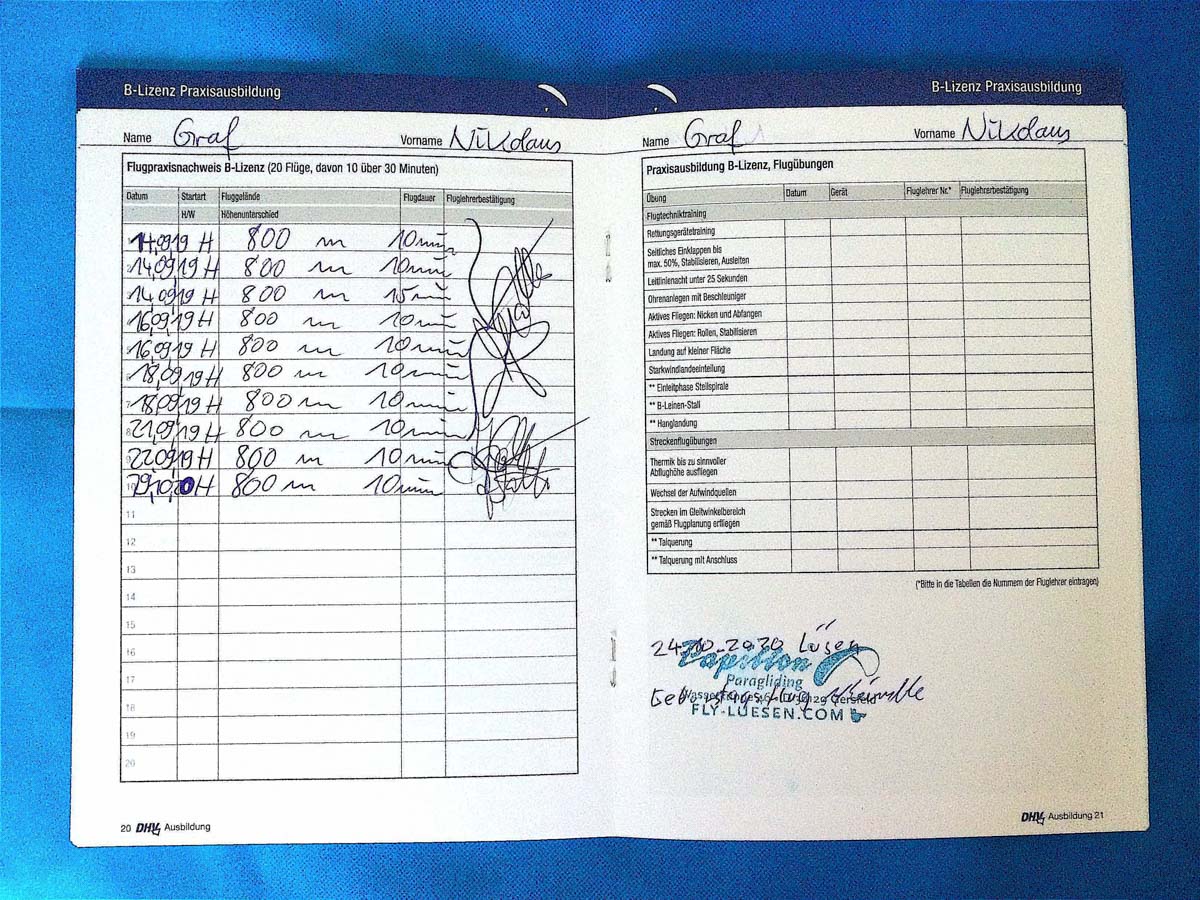 B-Lizenz Praxisausbildung
Name Graf Vorname Nikolaus
Flugpraxisnachweis B-Lizenz (20 Flüge, davon 10 über 30 Minuten)
Datum Startart Fluggelände Flugdauer Fluglehrerbestätigung
H/W Höhenunterschied
14.09.19 H 800 m 10 min
14.09.19 H 800 m 10 min
14.09.19 H 800 m 15 min
16.09.19 H 800 m 10 min
16.09.19 H 800 m 10 min
18.09.19 H 800 m 10 min
18.09.19 H 800 m 10 min
21.09.19 H 800 m 10 min
22.09.19 H 800 m 10 min
10 H 800 m 10 min
11
12
13
14
15
16
17
18
19
20
20 DHV Ausbildung
B-Lizenz Praxisausbildung
Name Graf Vorname Nikolaus
Praxisausbildung B-Lizenz, Flugübungen
Übung Datum Gerät Fluglehrer Nr.* Fluglehrerbestätigung
Flugtechniktraining
Rettungsgerätetraining
Seitliches Einklappen bis
max. 50%, Stabilisieren, Ausleiten
Leitlinienacht unter 25 Sekunden
Ohrenanlegen mit Beschleuniger
Aktives Fliegen: Nicken und Abfangen
Aktives Fliegen: Rollen, Stabilisieren
Landung auf kleiner Fläche
Starkwindlandeeinteilung
** Einleitphase Steilspirale
** B-Leinen-Stall
** Hanglandung
Streckenflugübungen
Thermik bis zu sinnvoller
Abflughöhe ausfliegen
Wechsel der Aufwindquellen
Strecken im Gleitwinkelbereich
gemäß Flugplanung erfliegen
** Talquerung
** Talquerung mit Anschluss
(*Bitte in die Tabellen die Nummern der Fluglehrer eintragen)
24.10.2020 Lüsen
Papillon
Paragliding
FLY-LUESEN.COM
DHV Ausbildung 21